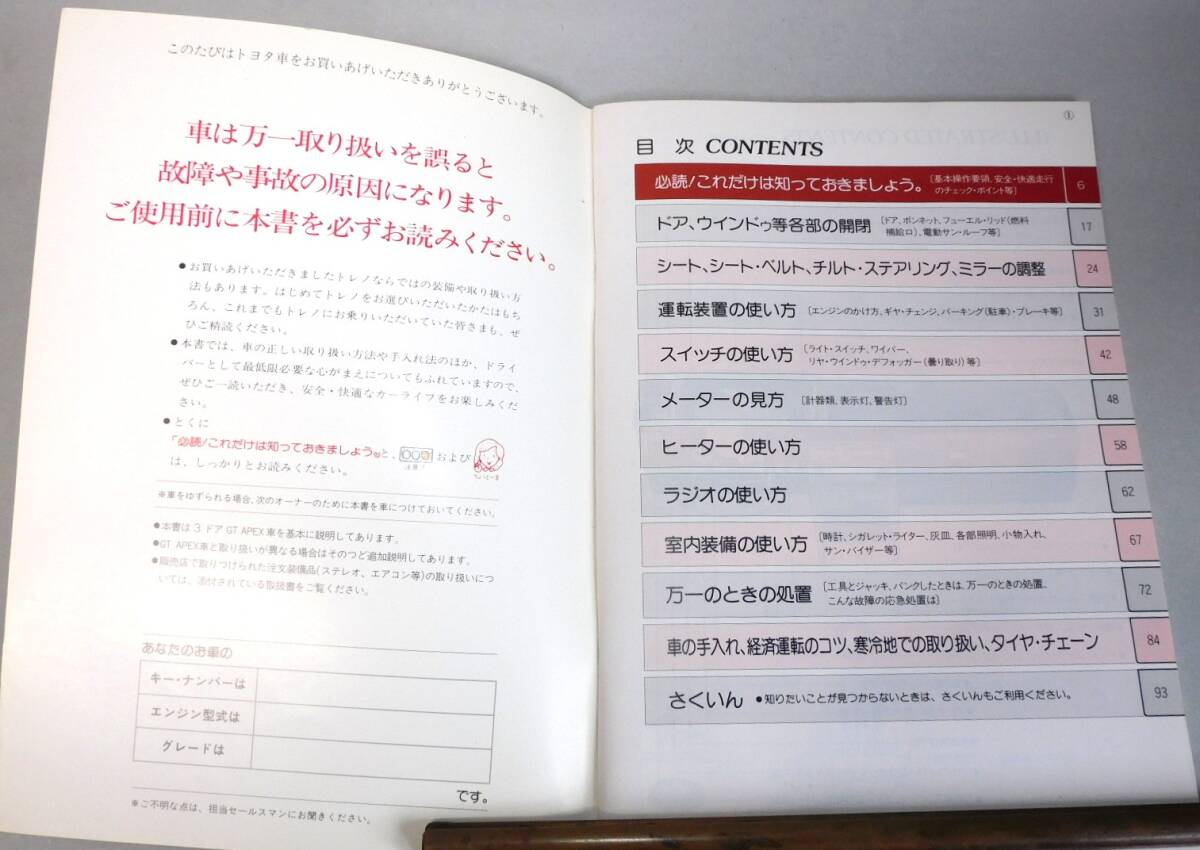 このたびはトヨタ車をお買いあげいただきありがとうございます。
車は万一取り扱いを誤ると
故障や事故の原因になります。
ご使用前に本書を必ずお読みください。
●お買いあげいただきましたトレノならではの装備や取り扱い方
法もあります。はじめてトレノをお選びいただいたかたはもち
ろん、これまでもトレノにお乗りいただいていた皆さまも、ぜ
ひご精読ください。
●本書では、車の正しい取り扱い方法や手入れ法のほか、ドライ
バーとして最低限必要な心がまえについてもふれていますので、
ぜひご一読いただき、安全・快適なカーライフをお楽しみくだ
さい。
●とくに
「必読!これだけは知っておきましょう。」と、 および
注意!
ちょっと一言
は、しっかりとお読みください。
※車をゆずられる場合、次のオーナーのために本書を車につけておいてください。
●本書は3ドアGT APEX車を基本に説明してあります。
●GT APEX車と取り扱いが異なる場合はそのつど追加説明してあります。
●販売店で取りつけられた注文装備品(ステレオ、エアコン等)の取り扱いにつ
いては、添付されている取扱書をご覧ください。
あなたのお車の
キー・ナンバーは
エンジン型式は
グレードは
です。
※ご不明な点は、担当セールスマンにお聞きください。
①
目 次 CONTENTS
必読!これだけは知っておきましょう。 [基本操作要領、安全・快適走行
のチェック・ポイント等] 6
ドア、ウインドゥ等各部の開閉 [ドア、ボンネット、フューエル・リッド(燃料
補給口)、電動サン・ルーフ等] 17
シート、シート・ベルト、チルト・ステアリング、ミラーの調整 24
運転装置の使い方 [エンジンのかけ方、ギヤ・チェンジ、パーキング(駐車)・ブレーキ等] 31
スイッチの使い方 [ライト・スイッチ、ワイパー、
リヤ・ウインドゥ・デフォッガー(曇り取り)等] 42
メーターの見方 [計器類、表示灯、警告灯] 48
ヒーターの使い方 58
ラジオの使い方 62
室内装備の使い方 [時計、シガレット・ライター、灰皿、各部照明、小物入れ、
サン・バイザー等] 67
万一のときの処置 [工具とジャッキ、パンクしたときは、万一のときの処置、
こんな故障の応急処置は] 72
車の手入れ、経済運転のコツ、寒冷地での取り扱い、タイヤ・チェーン 84
さくいん ●知りたいことが見つからないときは、さくいんもご利用ください。 93